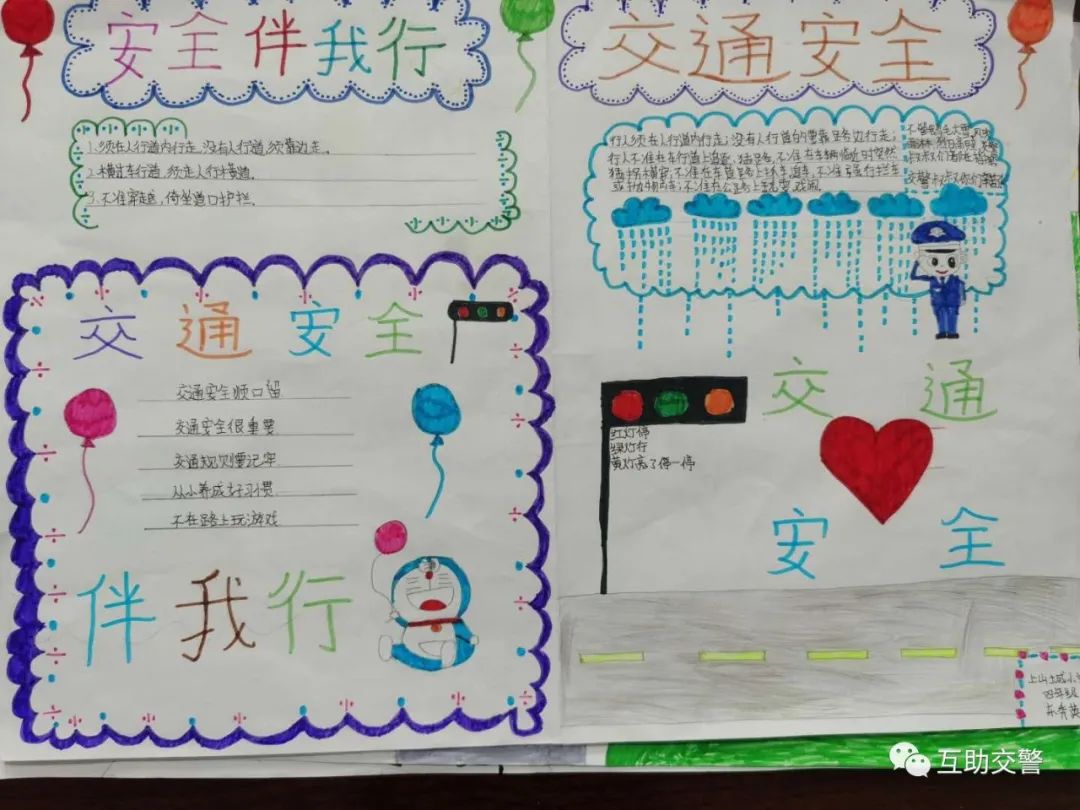 安全伴我行
1.须在人行道内行走,没有人行道,须靠边走.
2.横过车行道,须走人行横道.
3.不准穿越,倚坐道口护栏.
交通安全
交通安全顺口留
交通安全很重要
交通规则要记牢
从小养成好习惯
不在路上玩游戏
伴我行
交通安全
行人须在人行道内行走;没有人行道的需靠路边行走;
行人不准在车行道上追逐、猛跑,不准在车辆临近时突然
或扒物车;不准在公路上玩耍戏闹
红灯停
绿灯行
黄灯亮了停一停
交通
安全
上山土城小
四年级
互助交警